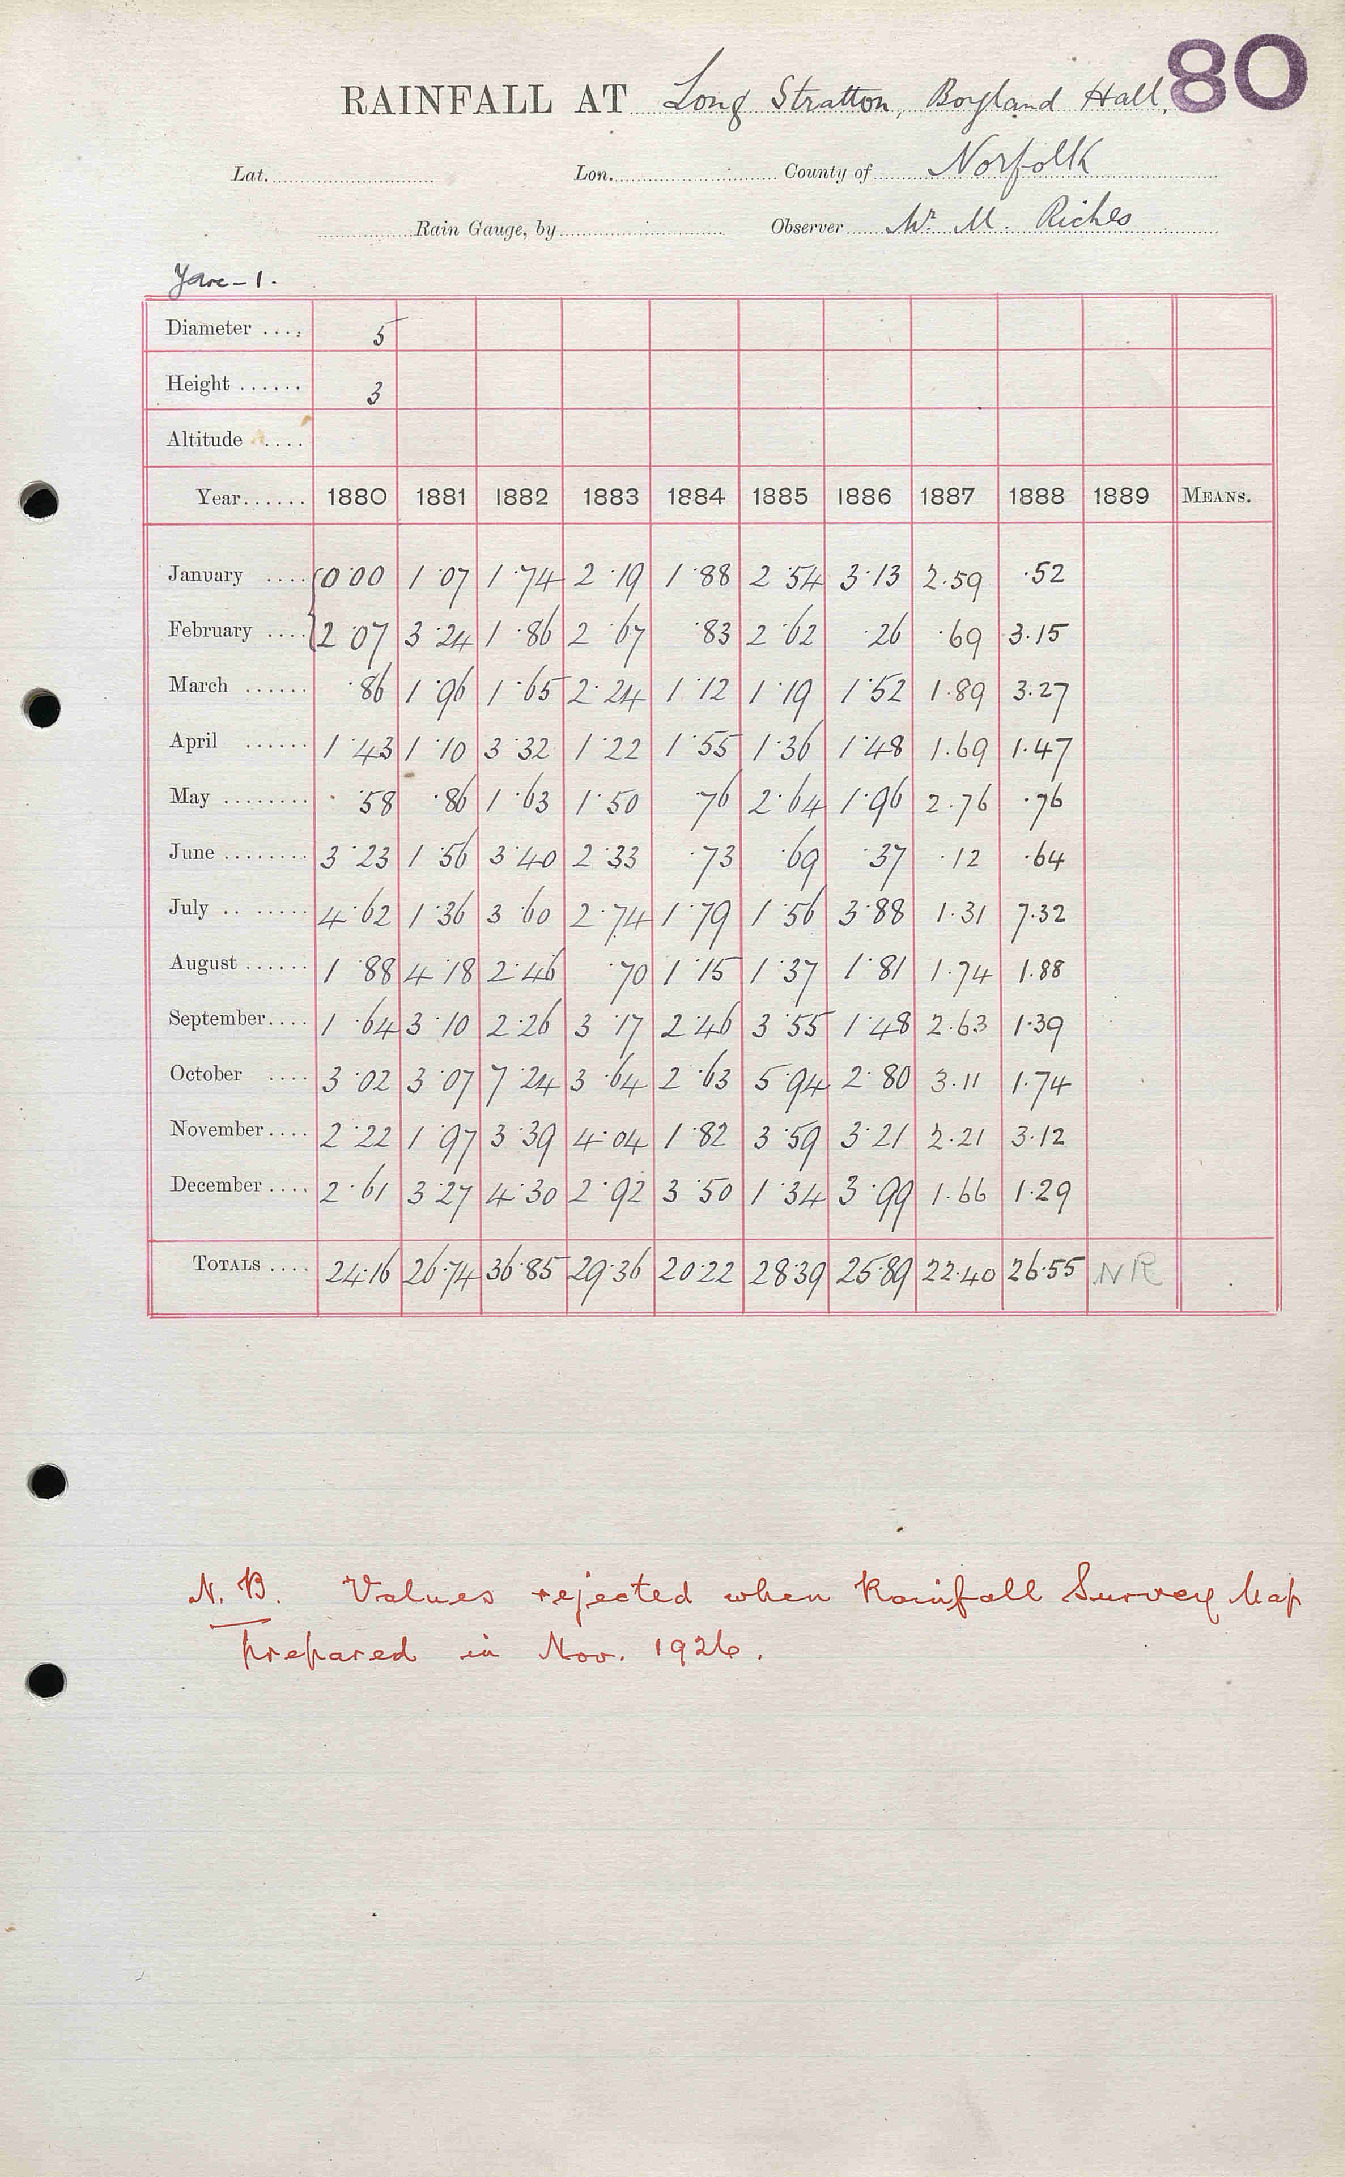 80
RAINFALL AT Long Stratton, Boyland Hall,
Lat. Lon. County of Norfolk
Rain Gauge, by Observer Mr. M. Riches
Yare - 1.
Diameter .... 5
Height ...... 3
Altitude ....
Year ...... 1880 1881 1882 1883 1884 1885 1886 1887 1888 1889 MEANS.
January .... 0.00 1.07 1.74 2.19 1.88 2.54 3.13 2.59 .52
February .... 2.07 3.24 1.86 2.67 .83 2.62 .26 .69 3.15
March ...... .86 1.96 1.65 2.24 1.12 1.19 1.52 1.89 3.27
April ...... 1.43 1.10 3.32 1.22 1.55 1.36 1.48 1.69 1.47
May ........ .58 .86 1.63 1.50 .76 2.64 1.96 2.76 .76
June ........ 3.23 1.56 3.40 2.33 .73 .69 .37 .12 .64
July .. ..... 4.62 1.36 3.60 2.74 1.79 1.56 3.88 1.31 7.32
August ...... 1.88 4.18 2.46 .70 1.15 1.37 1.81 1.74 1.88
September.... 1.64 3.10 2.26 3.17 2.46 3.55 1.48 2.63 1.39
October .... 3.02 3.07 7.24 3.64 2.63 5.94 2.80 3.11 1.74
November.... 2.22 1.97 3.39 4.04 1.82 3.59 3.21 2.21 3.12
December .... 2.61 3.27 4.30 2.92 3.50 1.34 3.99 1.66 1.29
TOTALS .... 24.16 26.74 36.85 29.36 20.22 28.39 25.89 22.40 26.55 NR
N.B. Values rejected when Rainfall Survey Map
prepared in Nov. 1926.